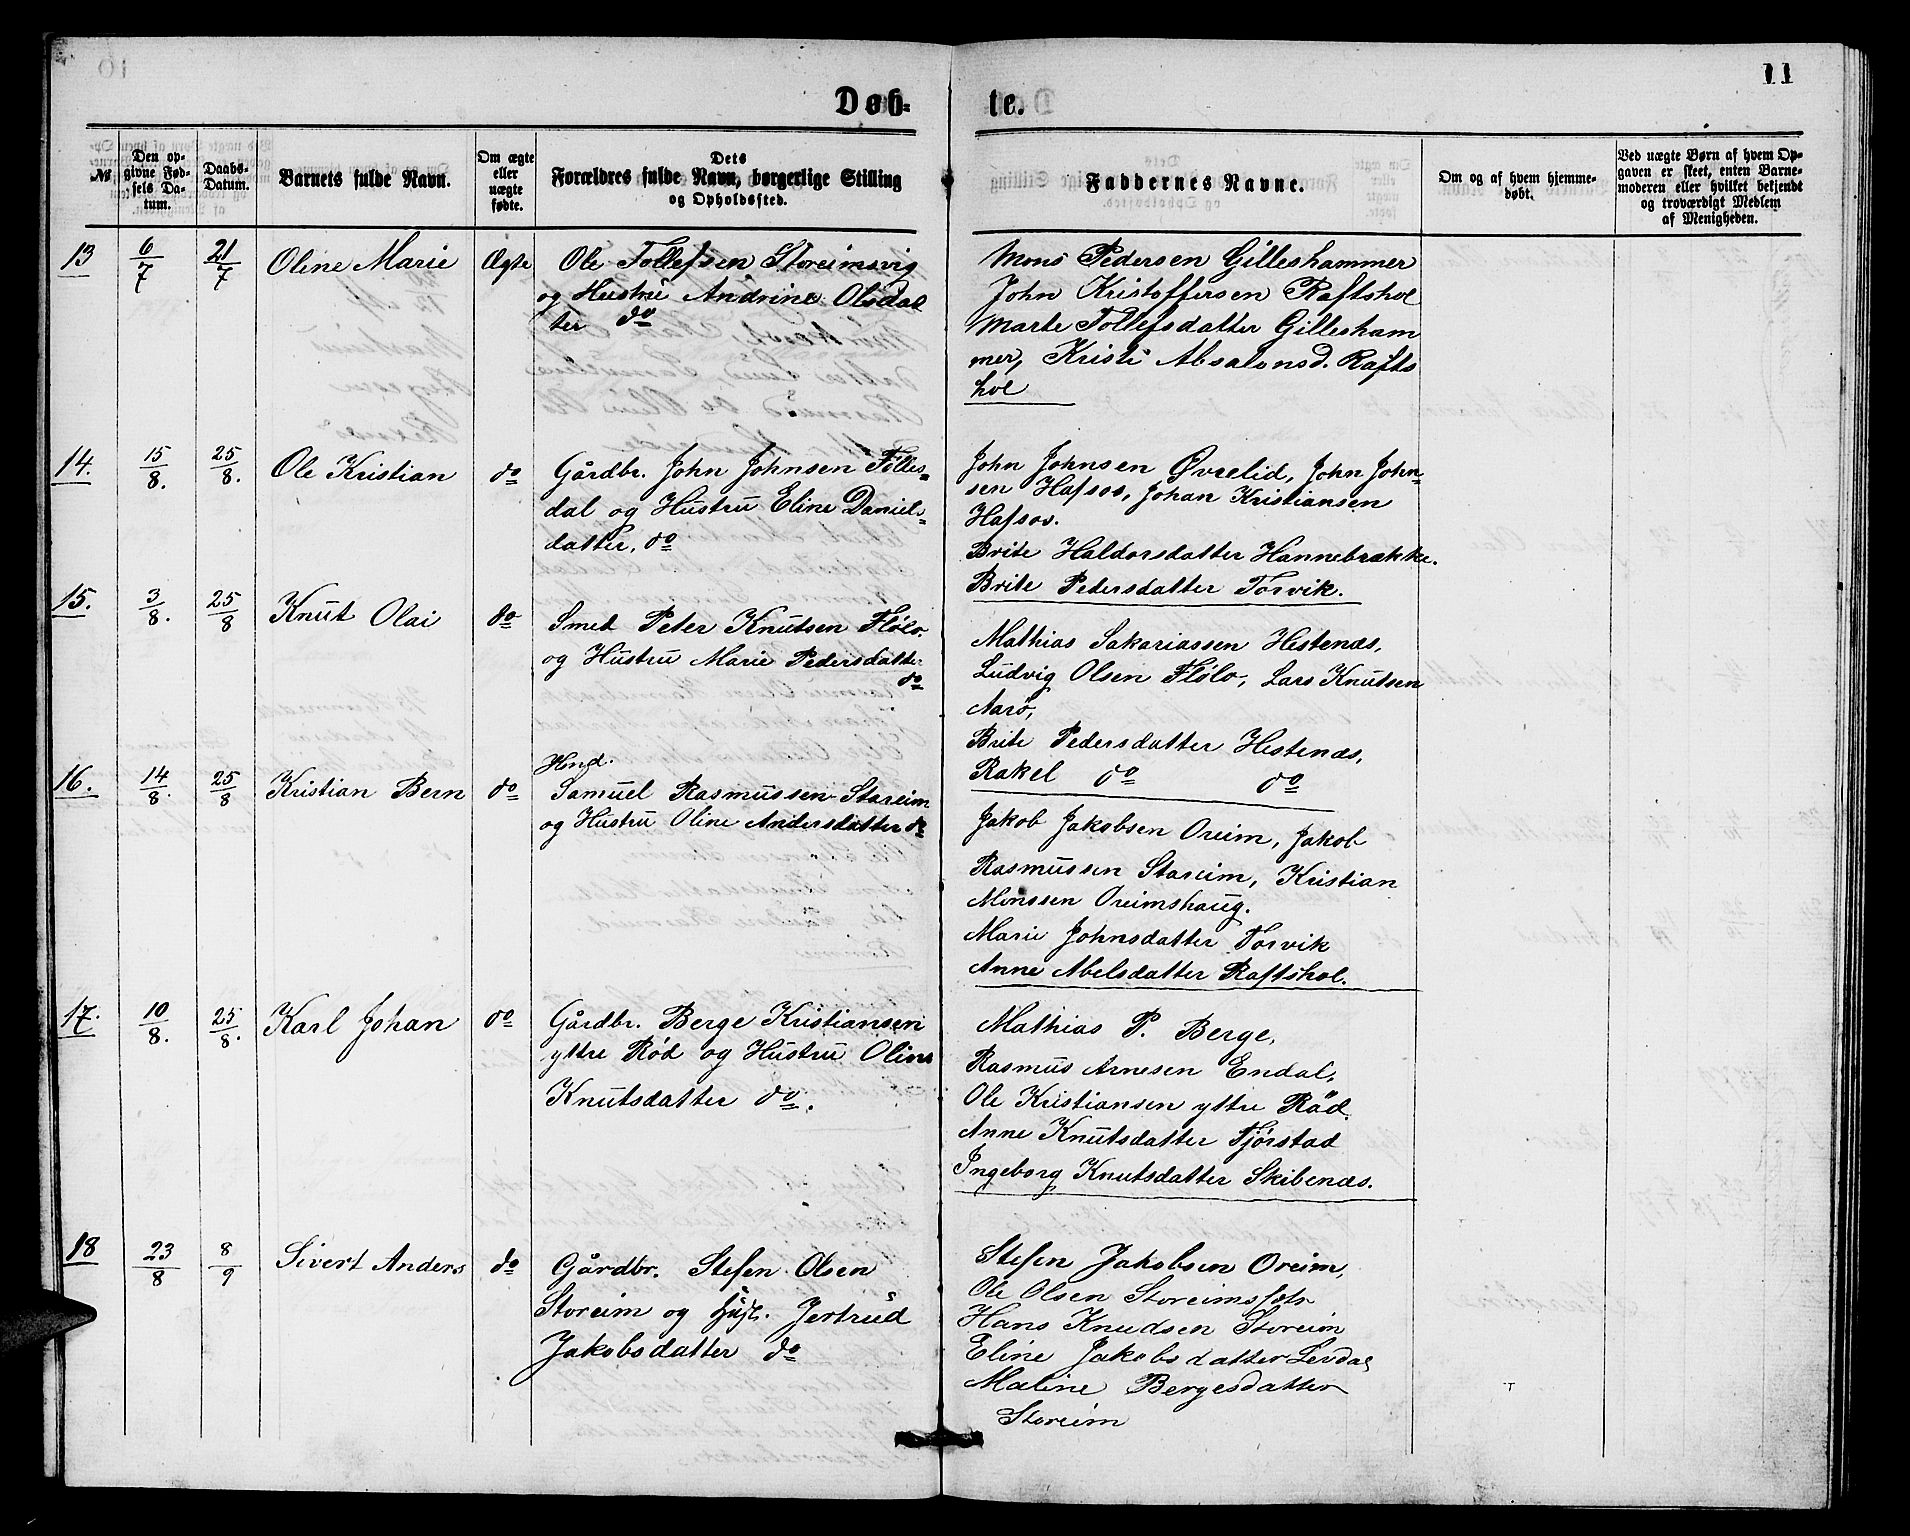 11
Døb- te.
№
Den op-
givne Fød-
sels Da-
tum.
Daabs-
Datum.
Barnets fulde Navn.
Om ægte
eller
uægte
fødte.
Dets
Forældres fulde Navn, borgerlige Stilling
og Opholdssted.
Faddernes Navne.
Om og af hvem hjemme-
døbt.
Ved uægte Børn af hvem Op-
gaven er skeet, enten Barne-
moderen eller hvilket bekjendt
og troværdigt Medlem
af Menigheden.
13 6/7 21/7 Oline Marie Ægte
Ole Tollefsen Storeimsvig
og Hustru Andrine Olsdat
ter do
Mons Pedersen Gilleshammer
John Kristoffersen Raftshol
Marte Tollefsdatter Gillesham
mer, Kristi Absalonsd. Rafts
hol
14. 15/8. 25/8. Ole Kristian do
Gårdbr. John Johnsen Følles-
dal og Hustru Eline Daniels-
datter, do
John Johnsen Øvrelid, John John-
sen Hafsos, Johan Kristiansen
Hafsos.
Brite Haldorsdatter Hannebrække.
Brite Pedersdatter Torvik.
15. 3/8. 25/8 Knut Olai do
Smed Peter Knutsen Flølo
og Hustru Marie Pedersdatter
do
Mathias Sakariassen Hestenæs,
Ludvig Olsen Flølo, Lars Knutsen
Aarø,
Brite Pedersdatter Hestenæs,
Rakel do do
16. 14/8. 25/8 Kristian Bern do
Hmd.
Samuel Rasmussen Stareim
og Hustru Oline Andersdatter do
Jakob Jakobsen Oreim, Jakob
Rasmussen Stareim, Kristian
Monssen Oreimshaug.
Marie Johnsdatter Torvik
Anne Abelsdatter Raftshol.
17. 10/8. 25/8. Karl Johan do
Gårdbr. Berge Kristiansen
yttre Rød og Hustru Oline
Knutsdatter do.
Mathias P. Berge,
Rasmus Arnesen Endal,
Ole Kristiansen yttre Rød
Anne Knutsdatter Fjørstad
Ingeborg Knutsdatter Skibenæs.
18 23/8 8/9 Sivert Anders do
Gårdbr. Stefen Olsen
Storeim og Hust. Jertrud
Jakobsdatter do
Stefen Jakobsen Oreim,
Ole Olsen Storeimsfætr
Hans Knudsen Storeim
Eline Jakobsdatter Levdal
Maline Bergesdatter
Storeim